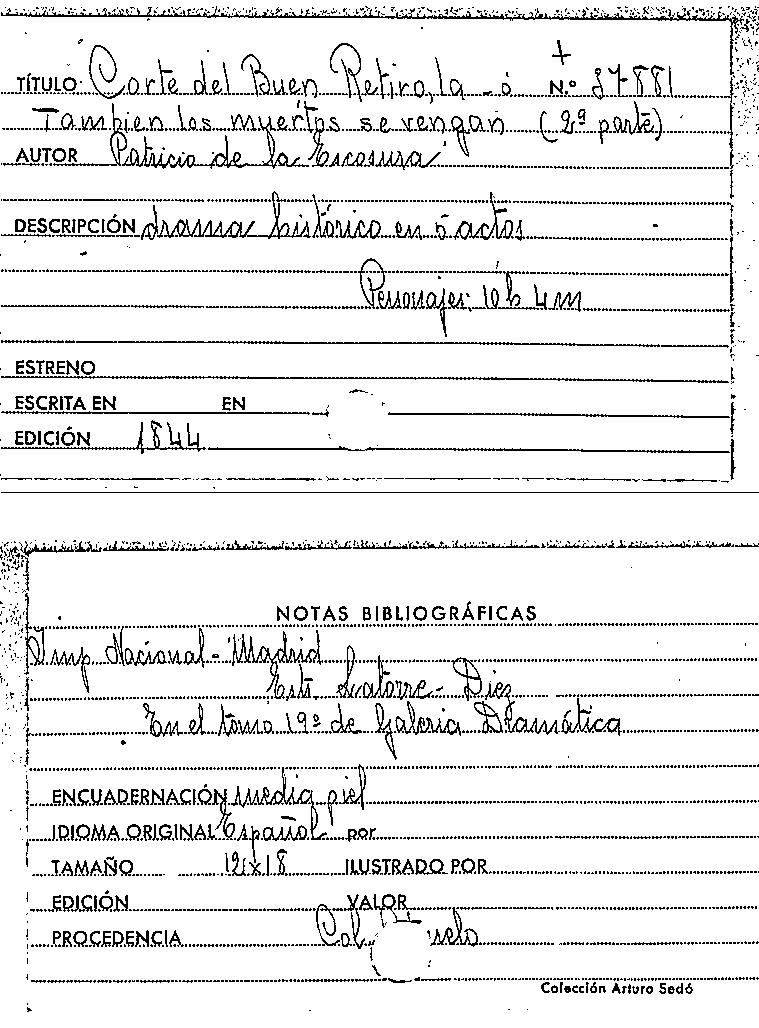 +
TÍTULO Corte del Buen Retiro, la - ó N.º 37-881
Tambien los muertos se vengan (2ª parte)
AUTOR Patricio de la Escosura
DESCRIPCIÓN drama histórico en 5 actos
Personajes: 10 h 4 m
ESTRENO
ESCRITA EN EN
EDICIÓN 1844
NOTAS BIBLIOGRÁFICAS
Imp. Nacional - Madrid
Latorre - Diez
En el tomo 19º de Galeria Dramática
ENCUADERNACIÓN media piel
IDIOMA ORIGINAL Español por
TAMAÑO 12x18 ILUSTRADO POR
EDICIÓN VALOR
PROCEDENCIA
Colección Arturo Sedó